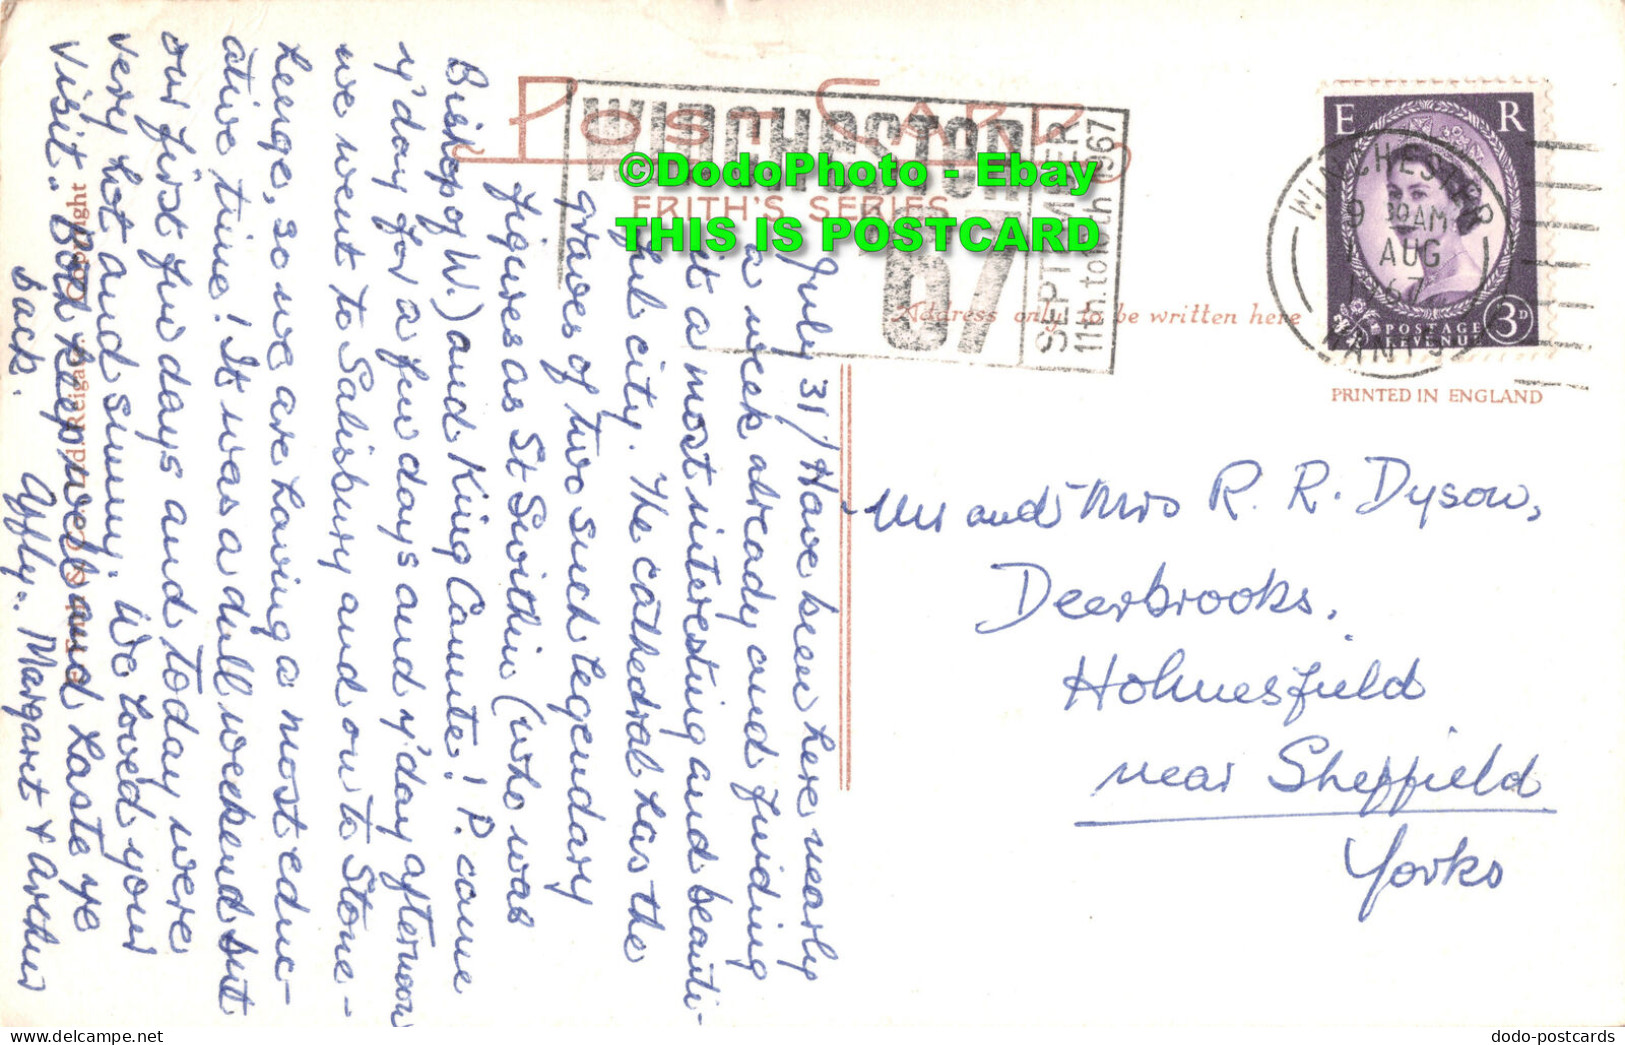 POST CARD
FRITH'S SERIES
WINCHESTER
67
SEPTEMBER
11th. to 16th 1967
©DodoPhoto - Ebay
THIS IS POSTCARD
Address only to be written here
E R
POSTAGE
REVENUE
3D
WINCHESTER
9 30AM
AUG
HANTS
PRINTED IN ENGLAND
July 31/ Have been here nearly
a week already and finding
it a most interesting and beauti-
ful city. The cathedral has the
graves of two such legendary
figures as St Swithin (who was
Bishop of W.) and King Canute! P. came
y'day for a few days and y'day afternoon
we went to Salisbury and on to Stone-
henge, so we are having a most educ-
ative time! It was a dull weekend but
our first few days and today were
very hot and sunny. We loved your
visit. Both keep well and haste ye
back. Affly. Margaret & Arthur
Mr and Mrs R. R. Dyson,
Deerbrooks,
Holmesfield
near Sheffield
Yorks
© Frith & Co Ltd. Reigate. Copyright
dodo-postcards